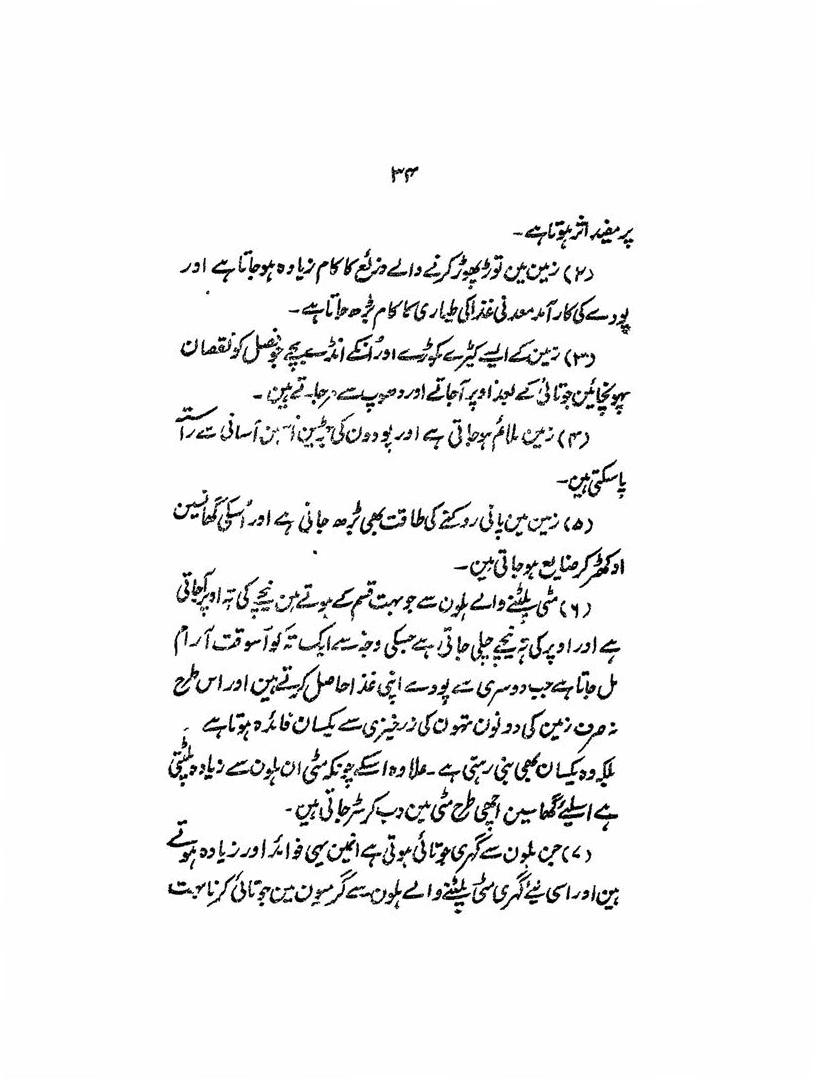 ۳۴
پر مفید اثر ہوتا ہے۔
(۲) زمین مین توڑ پھوڑ کرنے والے ذرائع کا کام زیادہ ہو جاتا ہے اور
پودے کی کارآمد معدنی غذا کی طیاری کا کام بڑھ جاتا ہے۔
(۳) زمین کے ایسے کیڑے مکوڑے اور اُنکے انڈے بچے جو فصل کو نقصان
پہونچائین جوتائی کے بعد اوپر آجاتے اور دھوپ سے مر جاتے ہین۔
(۴) زمین ملائم ہو جاتی ہے اور پودون کی جڑین اسمین آسانی سے راستے
پا سکتی ہین۔
(۵) زمین مین پانی روکنے کی طاقت بھی بڑھ جاتی ہے اور اُسکی گھانسین
اوکھڑ کر ضایع ہو جاتی ہین۔
(۶) مٹی پلٹنے والے ہلون سے جو بہت قسم کے ہوتے ہین نیچے کی تہ اوپر آجاتی
ہے اور اوپر کی تہ نیچے چلی جاتی ہے جسکی وجہ سے ایک تہ کو اسوقت آرام
مل جاتا ہے جب دوسری سے پودے اپنی غذا حاصل کرتے ہین اور اس طرح
نہ صرف زمین کی دونون تہون کی زرخیزی سے یکسان فائدہ ہوتا ہے
بلکہ وہ یکسان بھی بنی رہتی ہے۔ علاوہ اسکے چونکہ مٹی ان ہلون سے زیادہ پلٹتی
ہے اسلیئے گھاسین اچھی طرح مٹی مین دب کر سڑ جاتی ہین۔
(۷) جن ہلون سے گہری جوتائی ہوتی ہے انمین یہی فوائد اور زیادہ ہوتے
ہین اور اسی لیئے گہری مٹی پلٹنے والے ہلون سے گرمیون مین جوتائی کرنا بہت